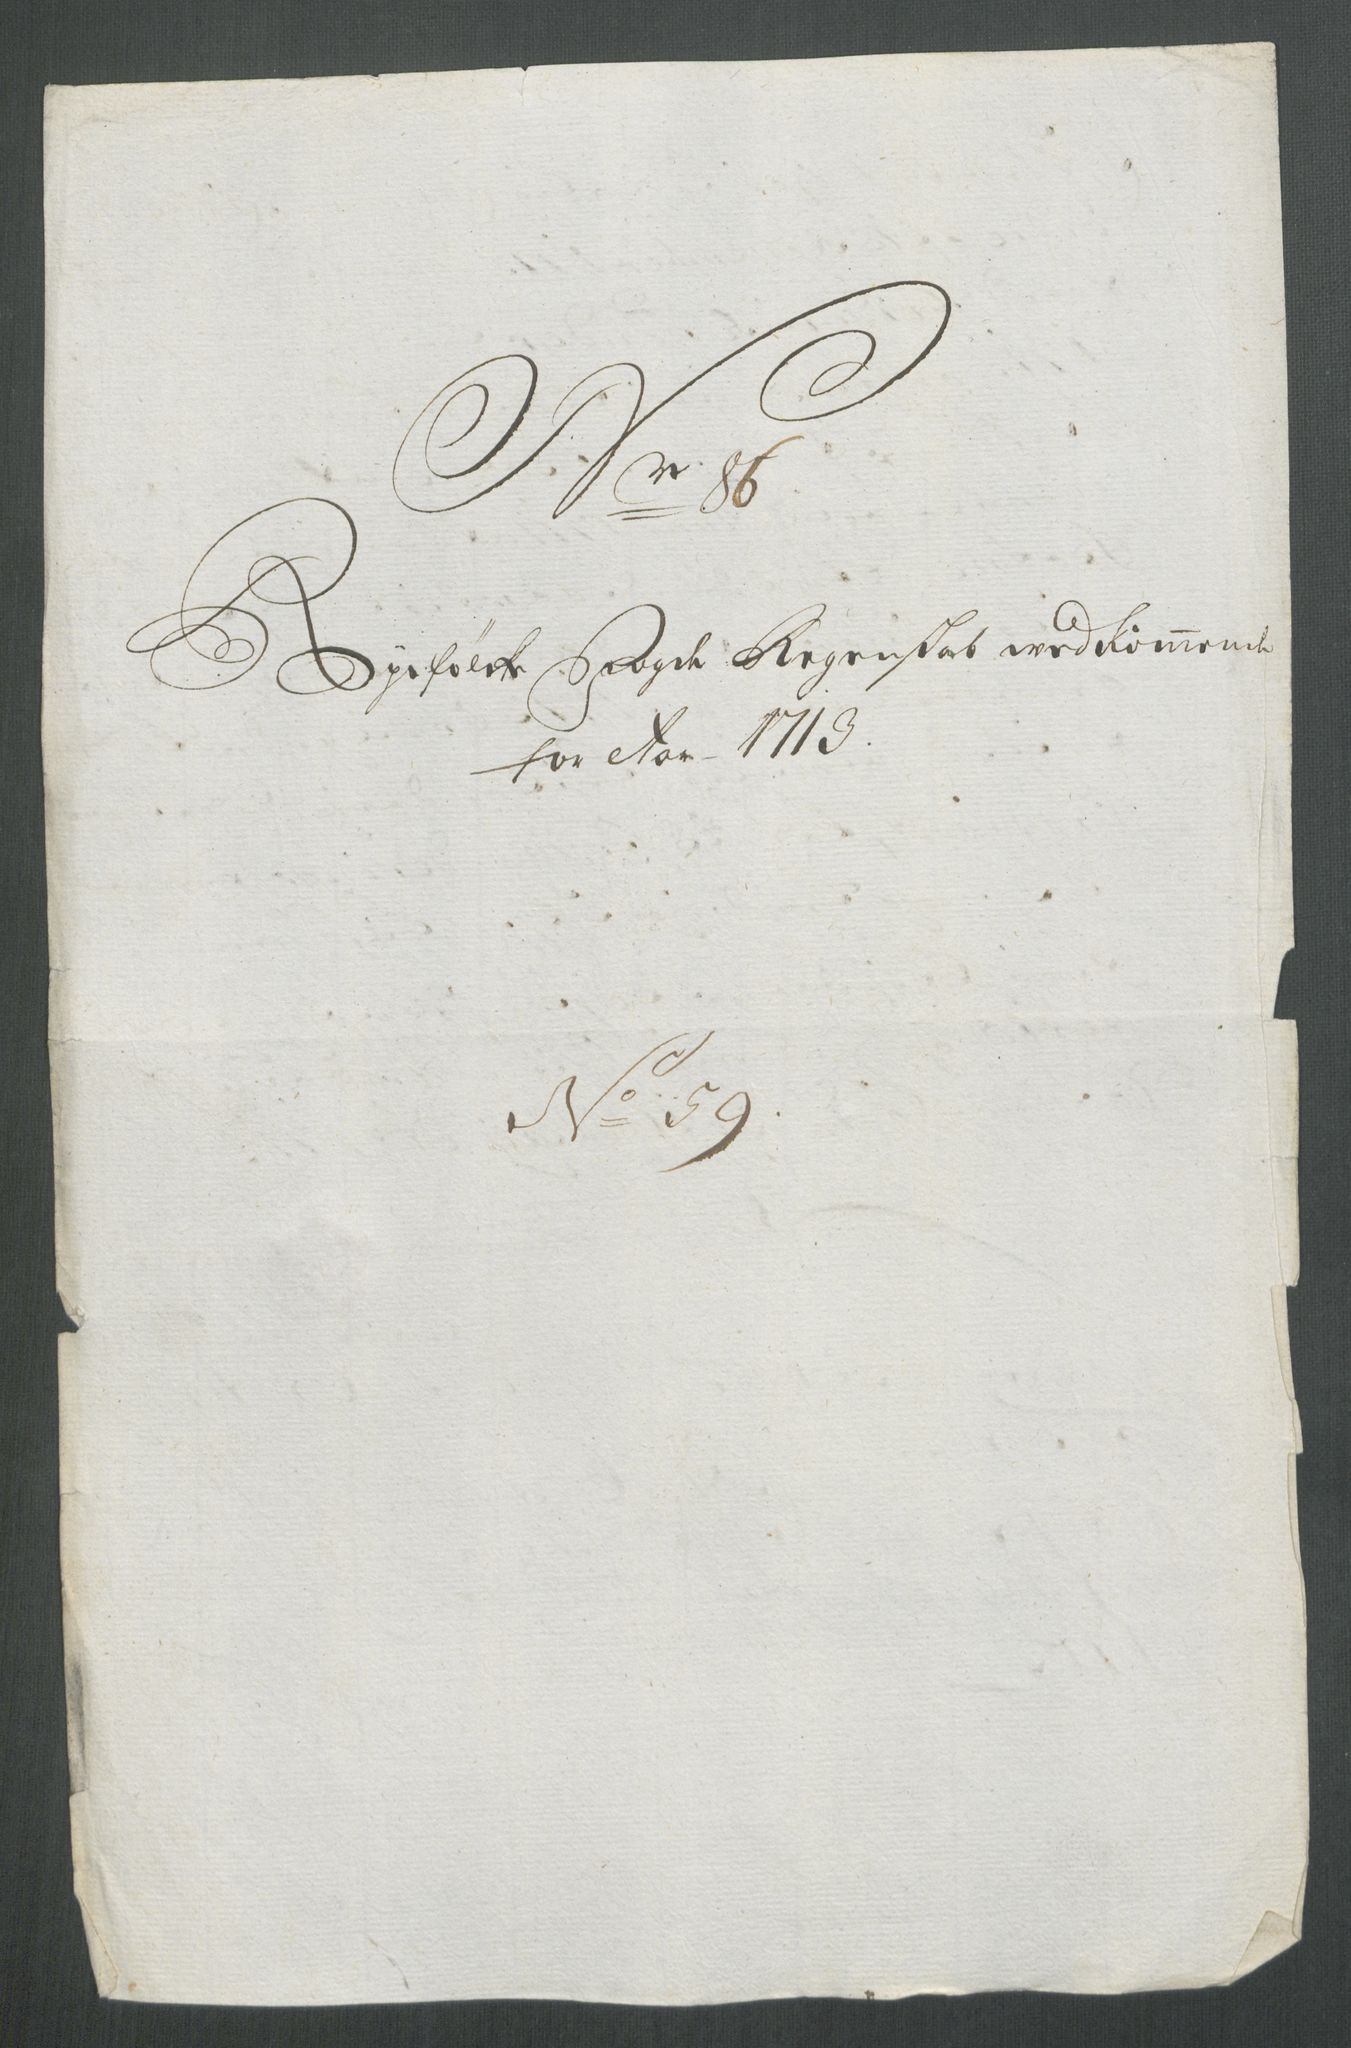 Nr. 86
Ryefølcke Fogde Regenskab wedkom̅ende
for Aar 1713.
No 59.